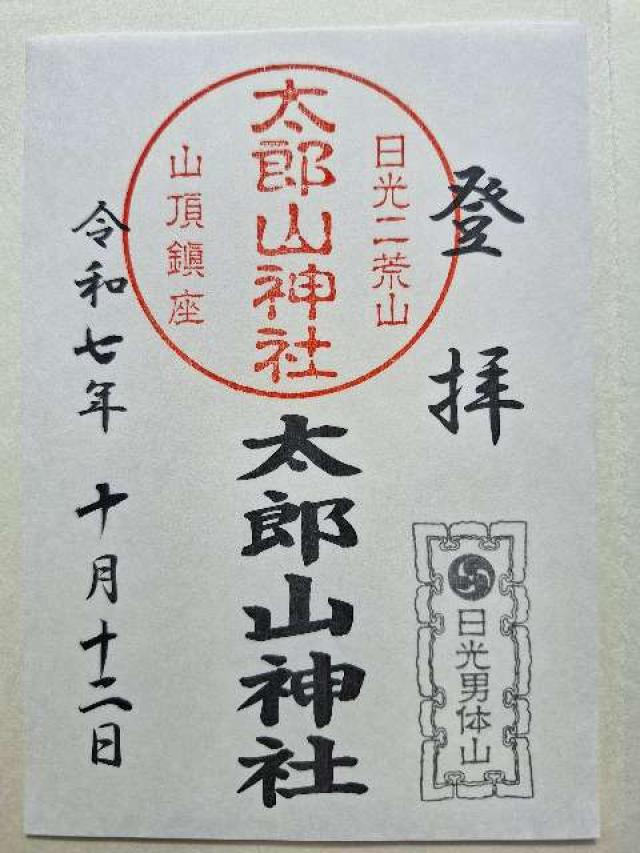 登拝
日光男体山
日光二荒山
太郎山神社
山頂鎮座
太郎山神社
令和七年 十月十二日